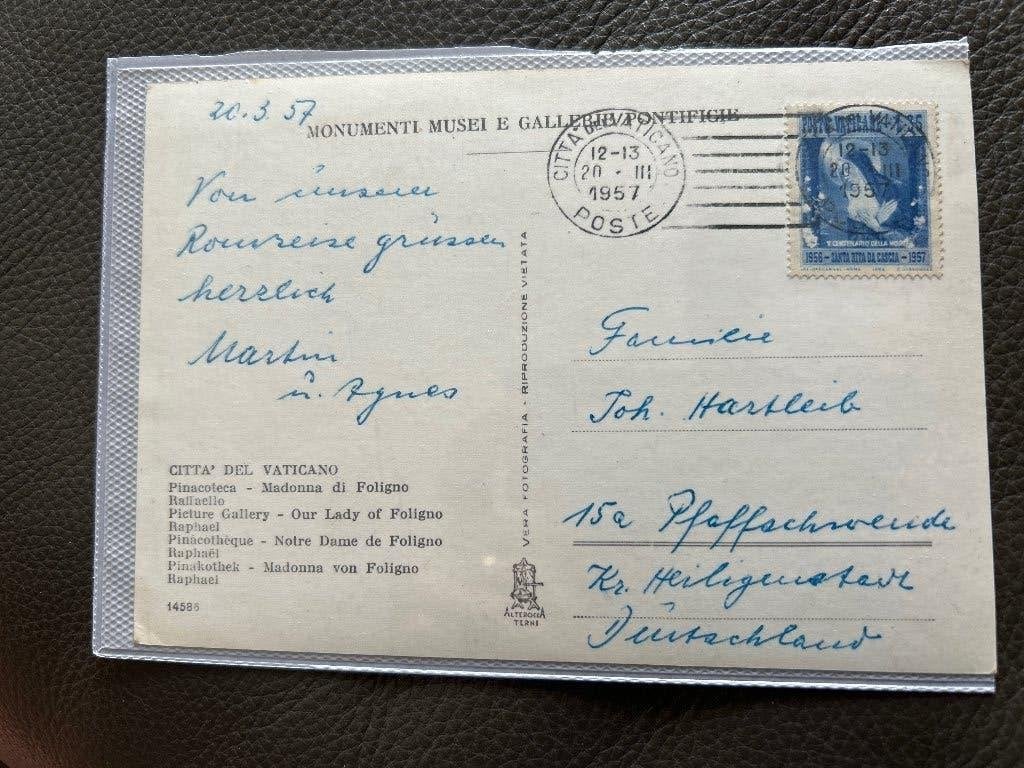 20.3.57
MONUMENTI MUSEI E GALLERIE PONTIFICIE
CITTÀ DEL VATICANO
12-13
20 · III
1957
POSTE
POSTE VATICANE L.35
12-13
20 III
1957
V CENTENARIO DELLA MORTE
1956 - SANTA RITA DA CASCIA - 1957
Von unserer
Romreise grüssen
herzlich
Martin
u. Agnes
VERA FOTOGRAFIA - RIPRODUZIONE VIETATA
Familie
Joh. Hartleib
15a Pfaffschwende
Kr. Heiligenstadt
Deutschland
CITTA' DEL VATICANO
Pinacoteca - Madonna di Foligno
Raffaello
Picture Gallery - Our Lady of Foligno
Raphael
Pinacothèque - Notre Dame de Foligno
Raphaël
Pinakothek - Madonna von Foligno
Raphael
14586
ALTEROCCA
TERNI